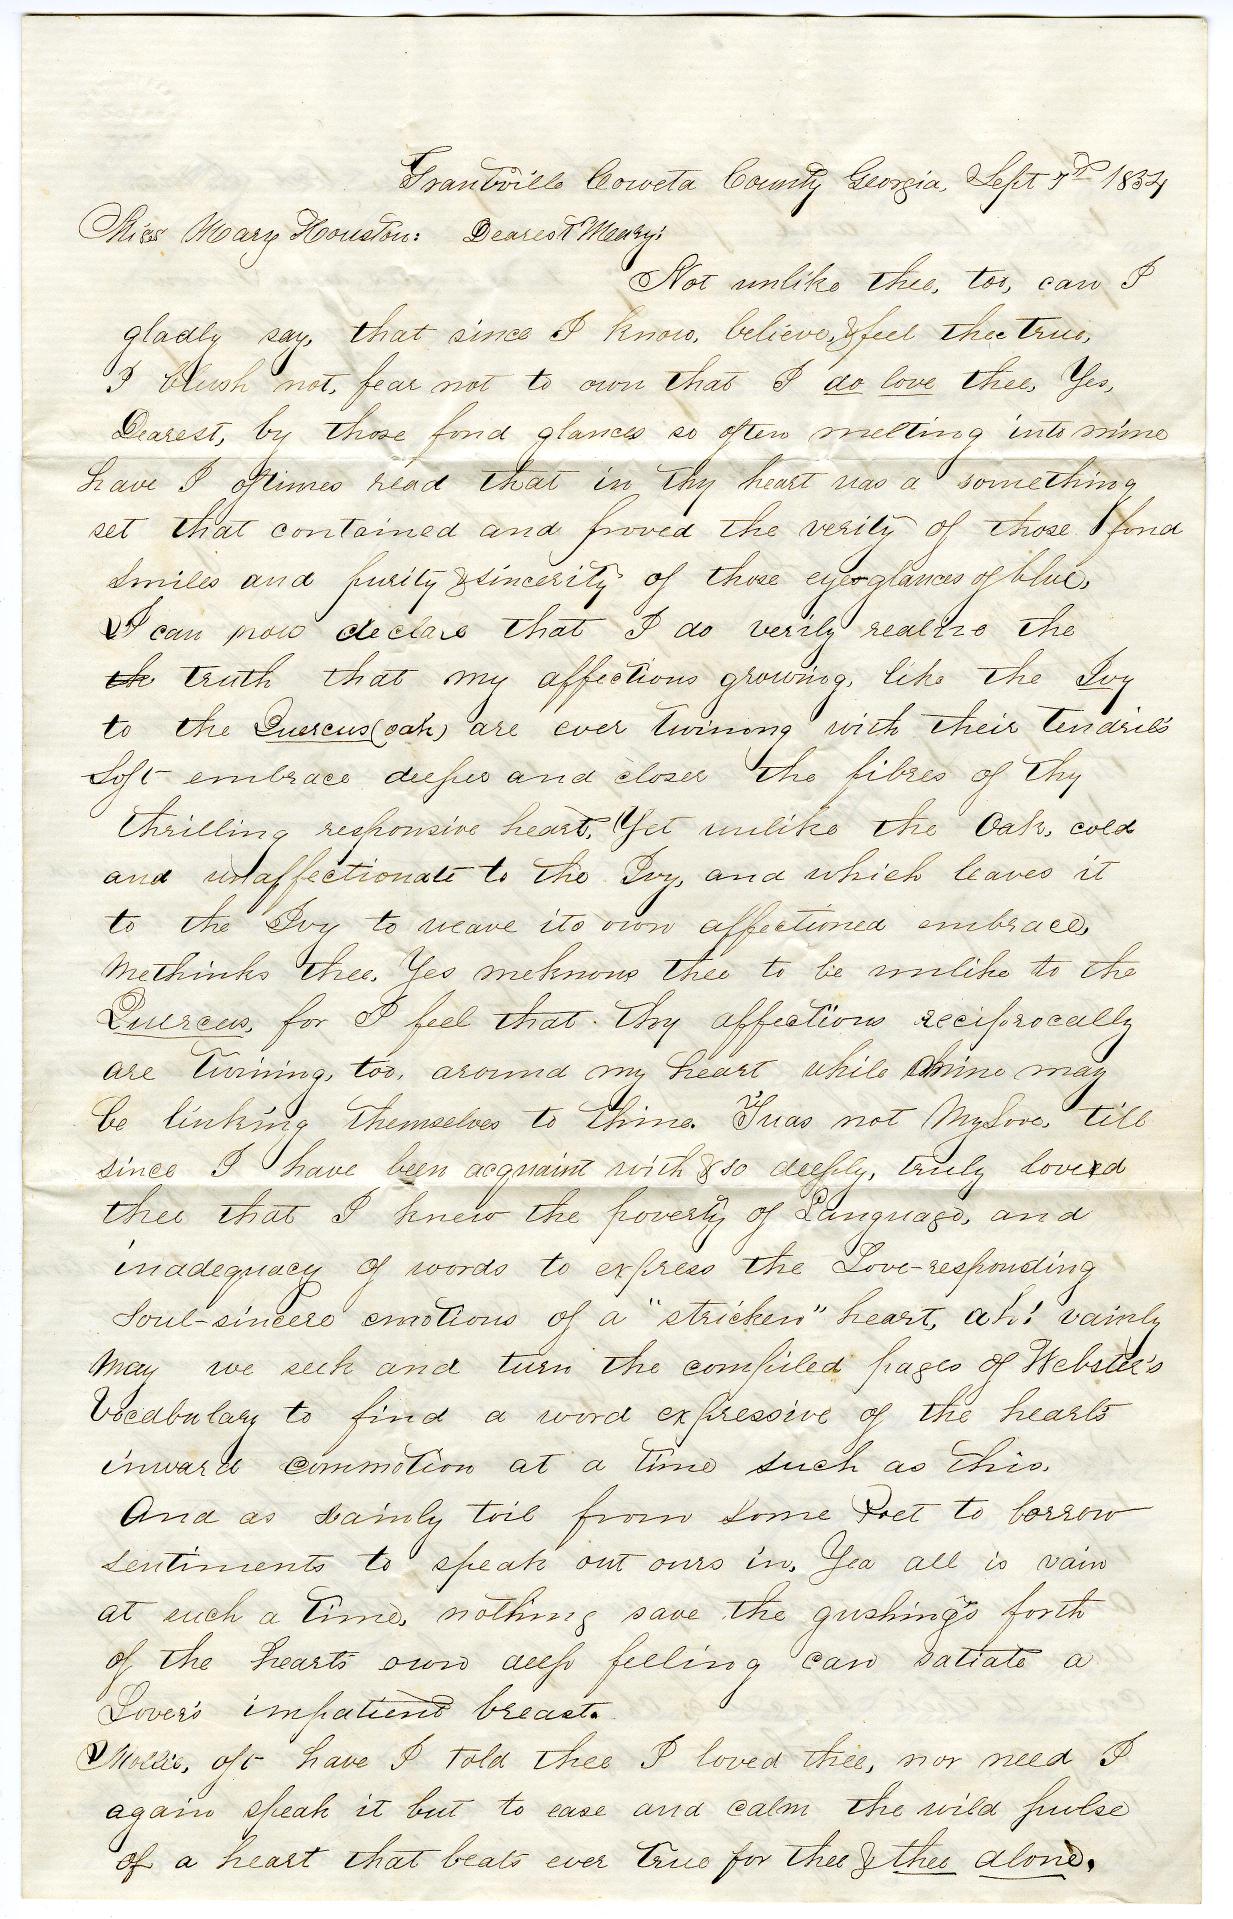 Grantville Coweta County Georgia, Sept 7th 1854
Miss Mary Houston: Dearest Mary:
Not unlike thee, too, can I
gladly say, that since I know, believe, & feel thee true,
I blush not, fear not to own that I do love thee. Yes,
Dearest, by those fond glances so often melting into mine
have I oftimes read that in thy heart was a something
set that contained and proved the verity of those fond
smiles and purity & sincerity of those eye-glances of blue.
I can now declare that I do verily realize the
th truth that my affections growing, like the Ivy
to the Quercus (oak) are ever twining with their tendril's
soft embrace deeper and closer the fibres of thy
thrilling responsive heart. Yet unlike the Oak, cold
and unaffectionate to the Ivy, and which leaves it
to the Ivy to weave its own affectioned embrace,
Methinks thee, Yes meknows thee to be unlike to the
Quercus, for I feel that thy affections reciprocally
are twining, too, around my heart while mine may
be linking themselves to thine. 'Twas not My Love, till
since I have been acquaint with & so deeply, truly loved
thee that I knew the poverty of Language, and
inadequacy of words to express the Love-responding
Soul-sincere emotions of a "stricken" heart, ah! vainly
may we seek and turn the compiled pages of Webster's
Vocabulary to find a word expressive of the hearts
inward commotion at a time such as this.
And as vainly toil from some Poet to borrow
sentiments to speak out ours in. Yea all is vain
at such a time, nothing save the gushing's forth
of the hearts own deep feeling can satiate a
Lover's impatient breast.
Mollie, oft have I told thee I loved thee, nor need I
again speak it but to ease and calm the wild pulse
of a heart that beats ever true for thee & thee alone.